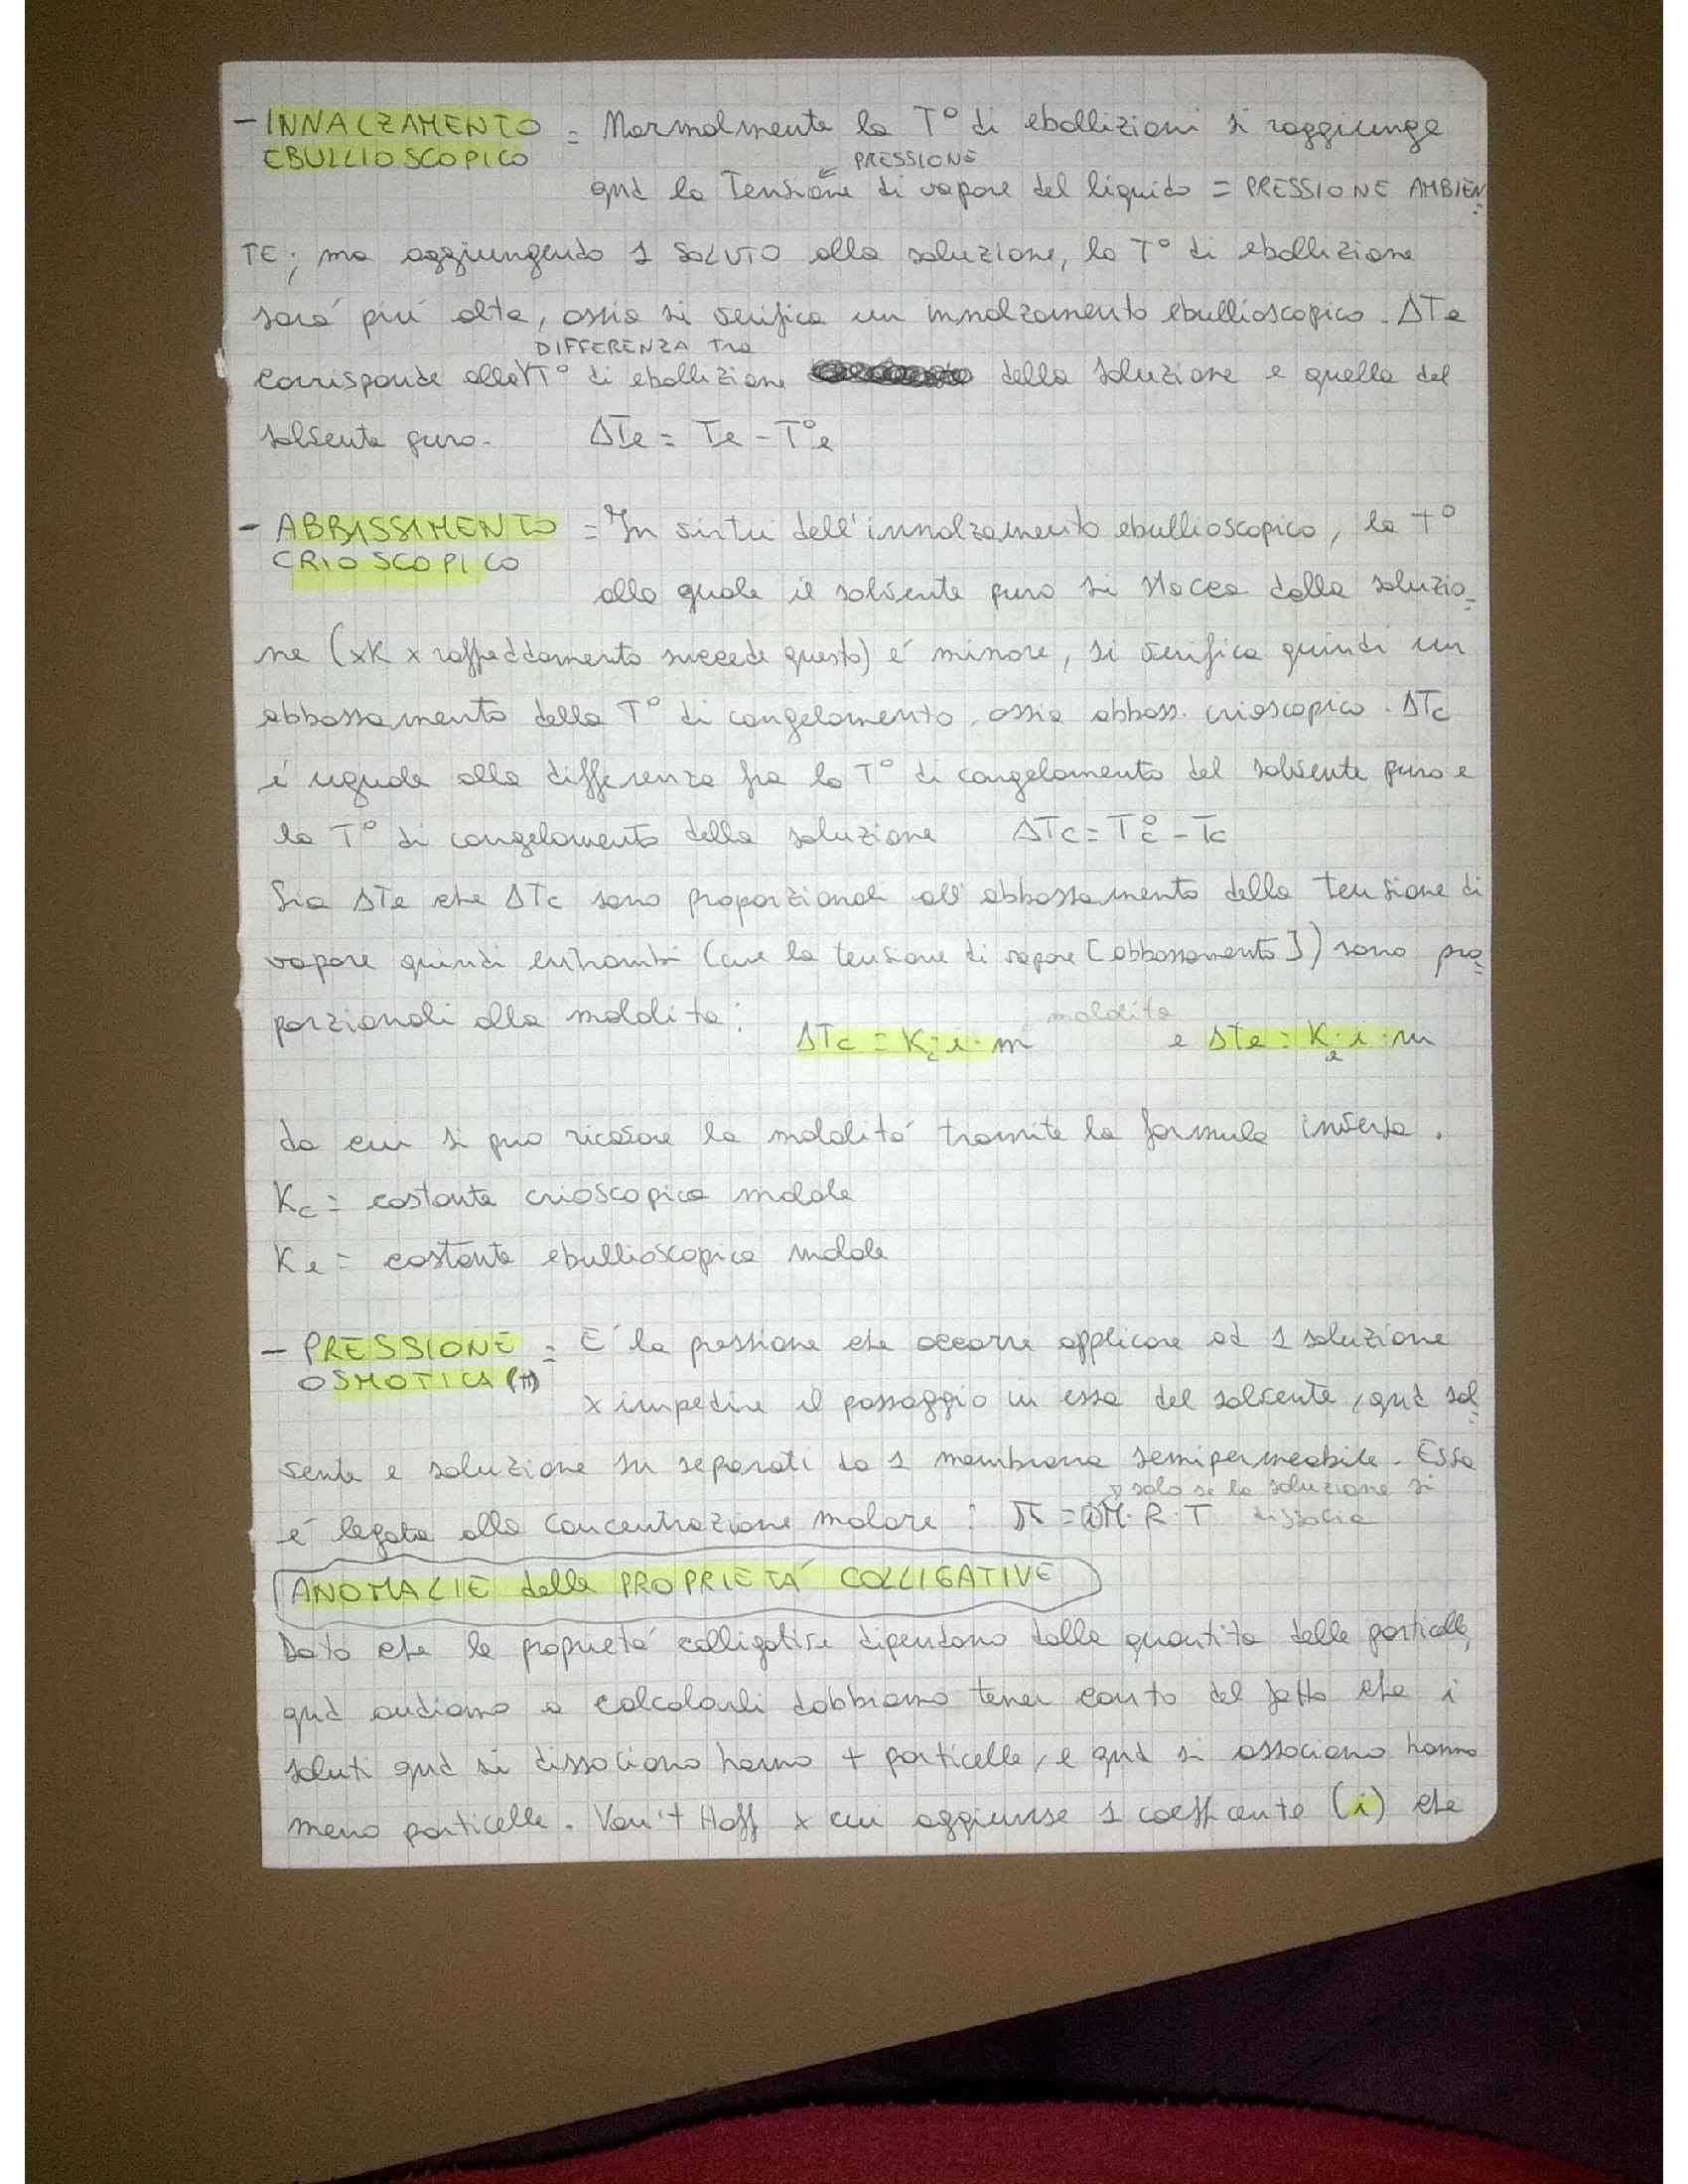 - INNALZAMENTO = Normalmente la T° di ebollizioni si raggiunge
EBULLIOSCOPICO
← PRESSIONE
qnd la Tensione di vapore del liquido = PRESSIONE AMBIEN=
TE; ma aggiungendo 1 SOLUTO alla soluzione, la T° di ebollizione
sará piú alta, ossia si verifica un innalzamento ebullioscopico. ΔTe
DIFFERENZA tra
corrisponde alla T° di ebollizione della soluzione e quella del
solvente puro. ΔTe = Te - T°e
- ABBASSAMENTO = In virtú dell'innalzamento ebullioscopico, la T°
CRIOSCOPICO
alla quale il solvente puro si stacca dalla soluzio=
ne (xK x raffreddamento succede questo) é minore, si verifica quindi un
abbassamento della T° di congelamento, ossia abbass. crioscopico. ΔTc
é uguale alla differenza fra la T° di congelamento del solvente puro e
la T° di congelamento della soluzione ΔTc = T°c - Tc
Sia ΔTe che ΔTc sono proporzionali all'abbassamento della tensione di
vapore quindi entrambi (cme la tensione di vapore [abbassamento]) sono pro=
porzionali alla molalita: ΔTc = Kc·i·m molalita e ΔTe = Ke·i·m
da cui si puo ricavare la molalitá tramite la formula inversa.
Kc = costante crioscopica molale
Ke = costante ebullioscopica molale
- PRESSIONE = É la pressione che occorre applicare ad 1 soluzione
OSMOTICA (π)
x impedire il passaggio in essa del solvente, qnd sol=
vente e soluzione sn separati da 1 membrana semipermeabile. Essa
solo se la soluzione si
é legata alla concentrazione molare: π = iM·R·T dissocia
ANOMALIE delle PROPRIETÁ COLLIGATIVE
Dato che le proprietá colligative dipendono dalla quantita delle particelle,
qnd andiamo a calcolarli dobbiamo tener conto del fatto che i
soluti qnd si dissociano hanno + particelle, e qnd si associano hanno
meno particelle. Van't Hoff x cui aggiunse 1 coefficente (i) che